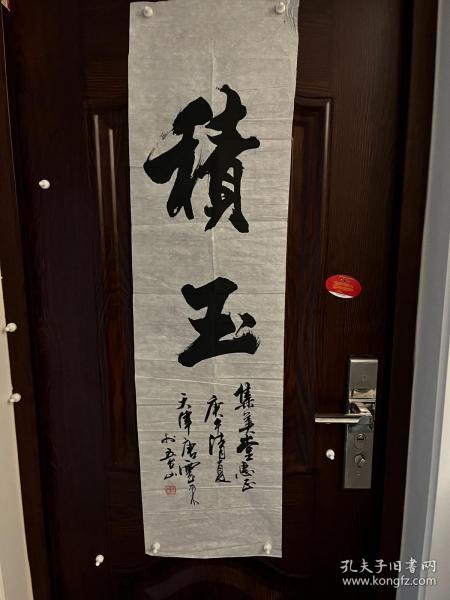 積
玉
集美堂惠正
庚午清夏
天津唐雲來
书
孔夫子旧书网
www.kongfz.com